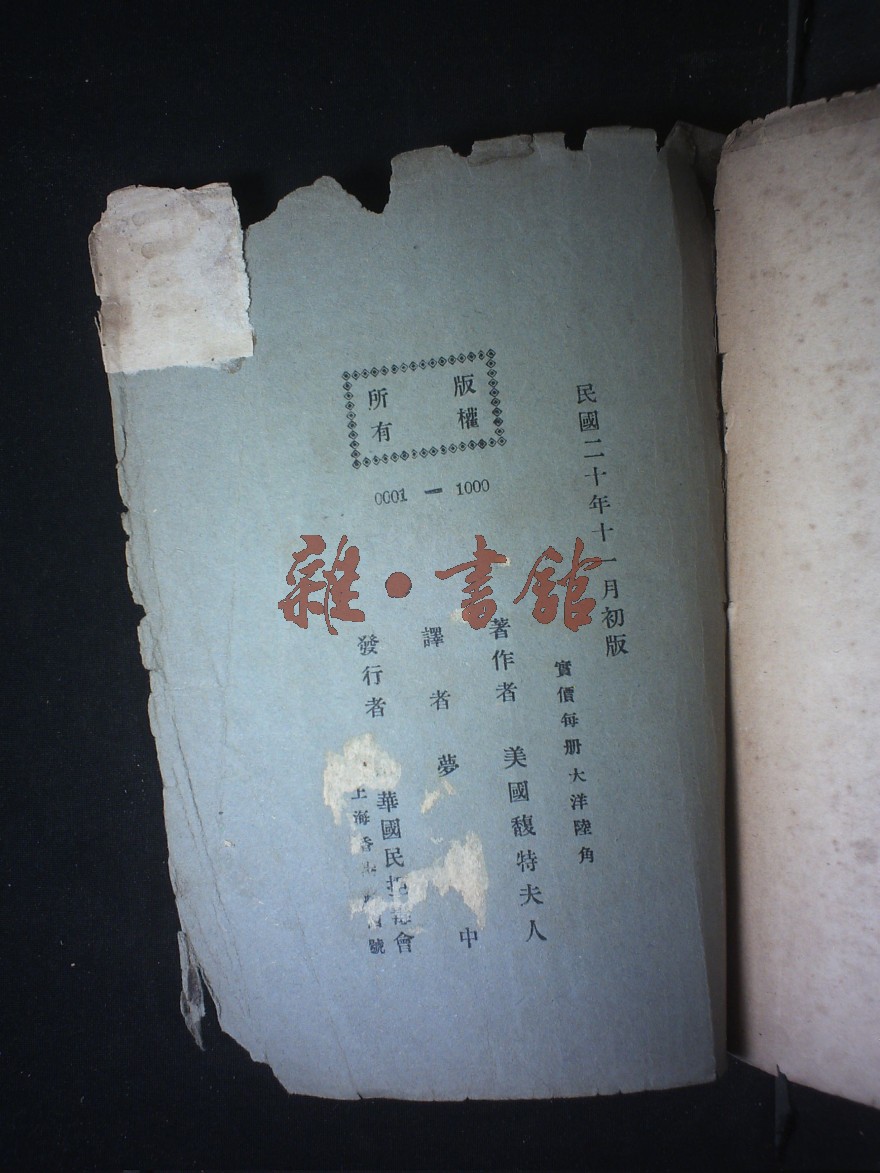 民國二十年十一月初版
實價每册大洋陸角
著作者 美國馥特夫人
譯者 夢中
發行者 華國民拒會
上海香號
版權
所有
0001 — 1000
雜·書館